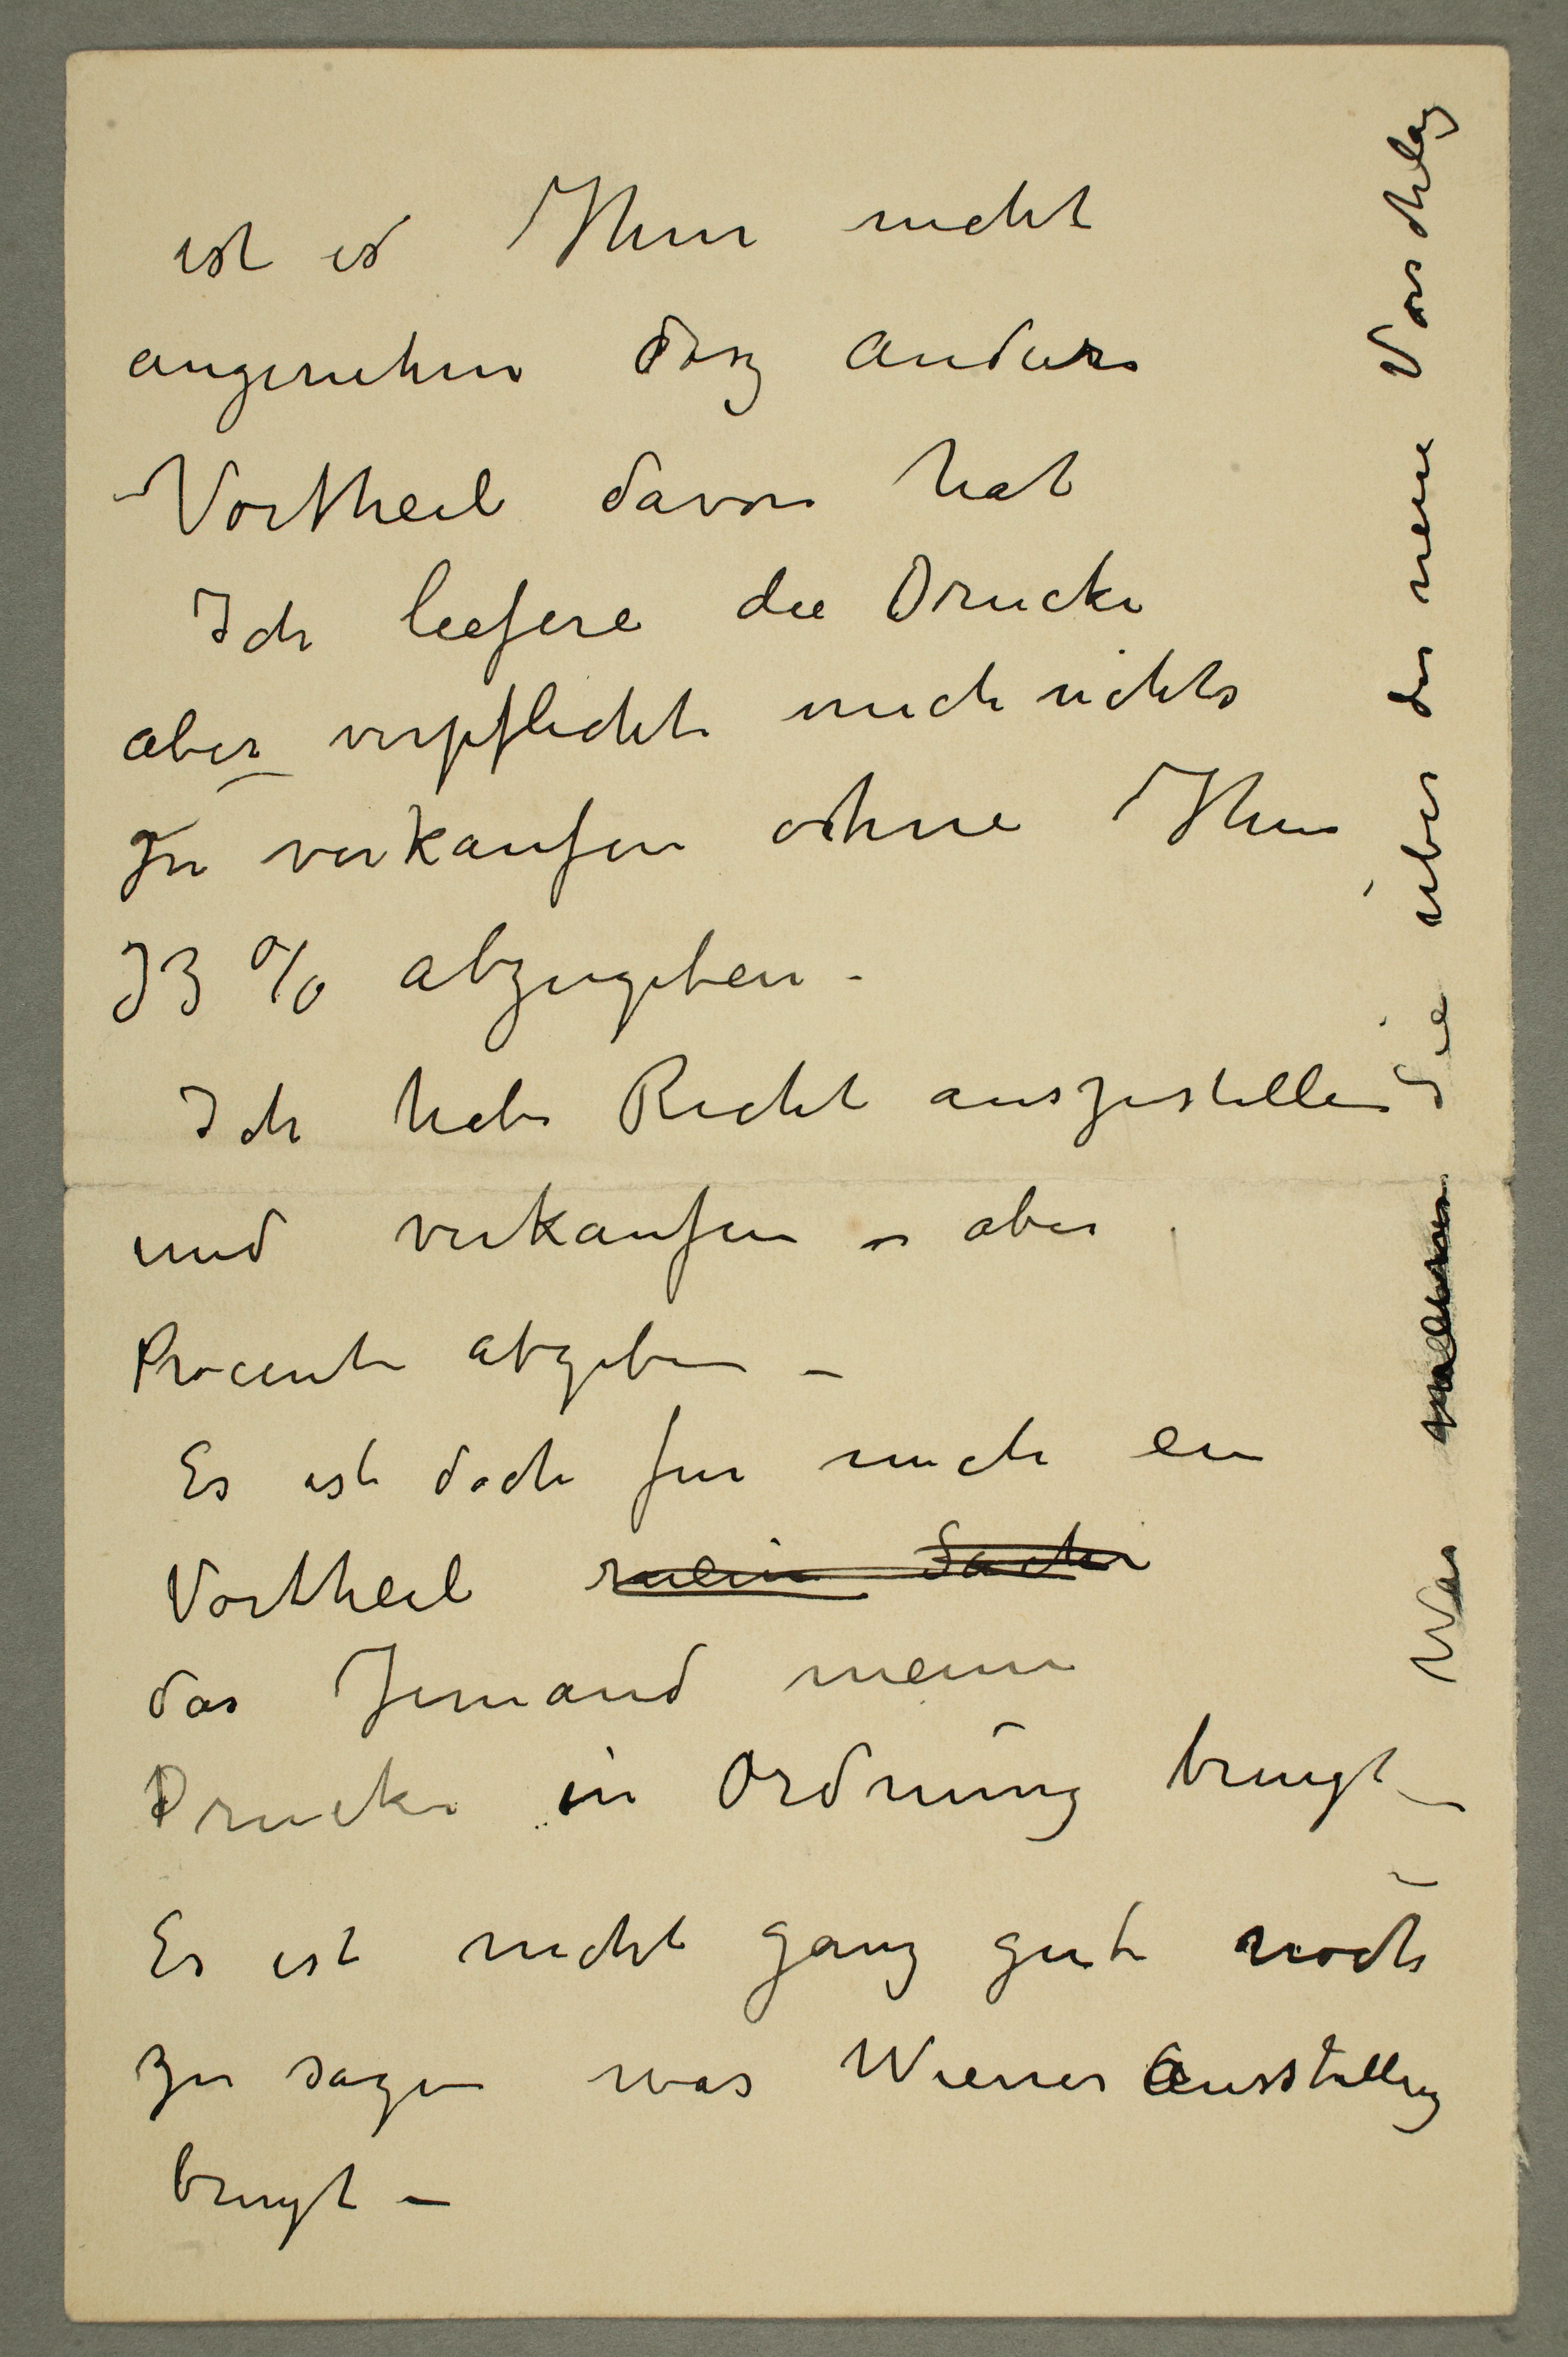 ist es Ihnen nicht
angenehm dasz andere
Vortheil davon hat
Ich liefere die Drucke
aber verpflichte mich nichts
zu verkaufen ohne Ihnen
33 % abzugeben –
Ich habe Recht auszustellen
und verkaufen – aber
Procente abgeben –
Es ist doch fur mich ein
Vortheil meine Sache
das Jemand meine
Drucke in Ordnung bringt –
Es ist nicht ganz gut noch
zu sagen was Wiener Ausstellung
bringt –
Was Sie über der neue Vorschlag